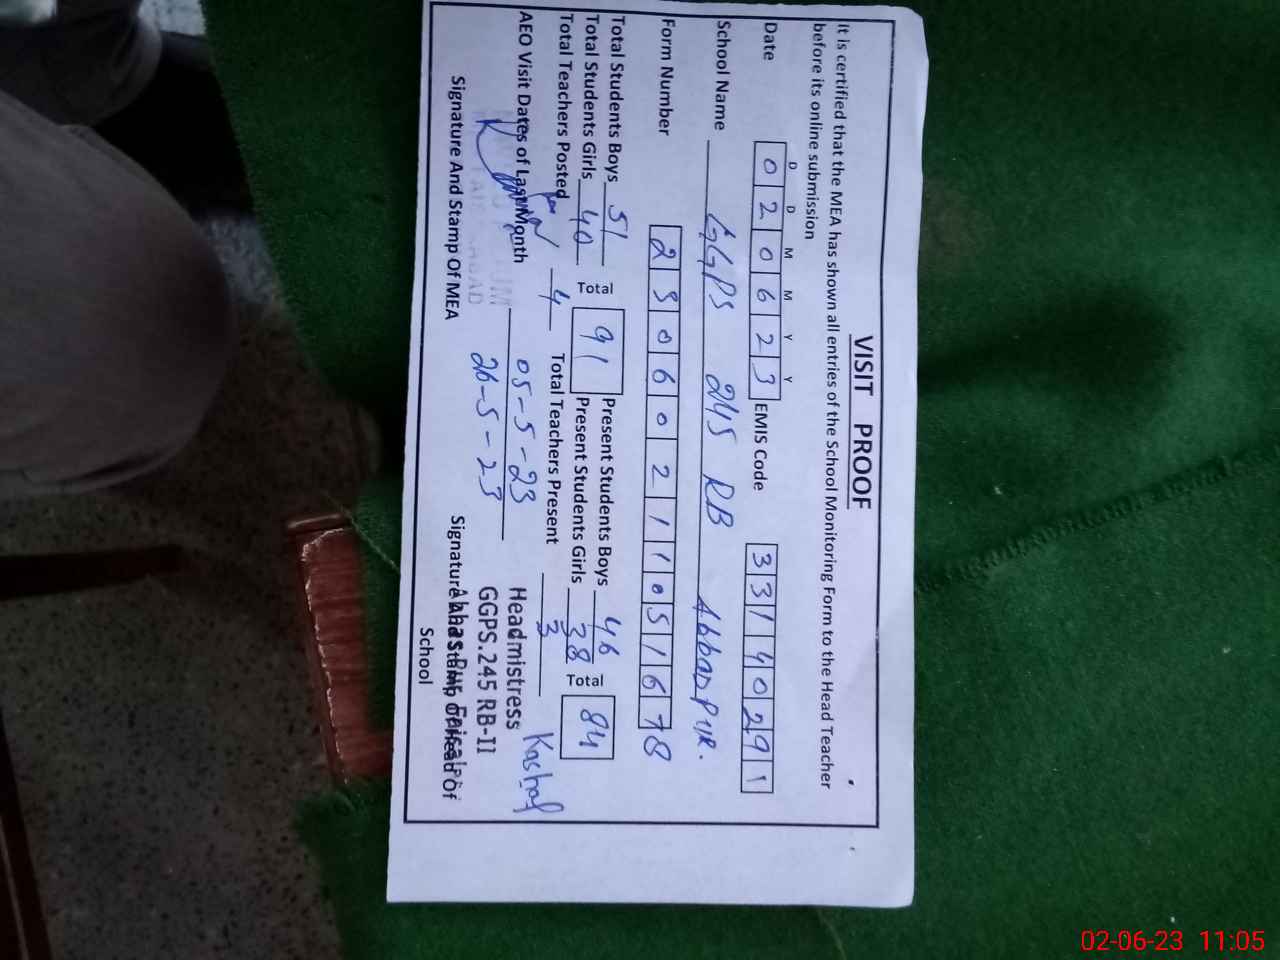 VISIT PROOF
It is certified that the MEA has shown all entries of the School Monitoring Form to the Head Teacher
before its online submission
D D M M Y Y
Date 0 2 0 6 2 3 EMIS Code 3 3 1 4 0 2 9 1
School Name GGPS 245 RB Abbaspur.
Form Number 2 3 0 6 0 2 1 1 0 5 1 6 7 8
Total Students Boys 51 Present Students Boys 46
Total 91 Total 84
Total Students Girls 40 Present Students Girls 38
Total Teachers Posted 4 Total Teachers Present 3
AEO Visit Dates of Last Month 05-5-23
26-5-23
Kashaf
Headmistress
GGPS.245 RB-II
Abbas Pur
Signature And Stamp Of MEA Signature And Stamp Of Head Of
School
02-06-23 11:05